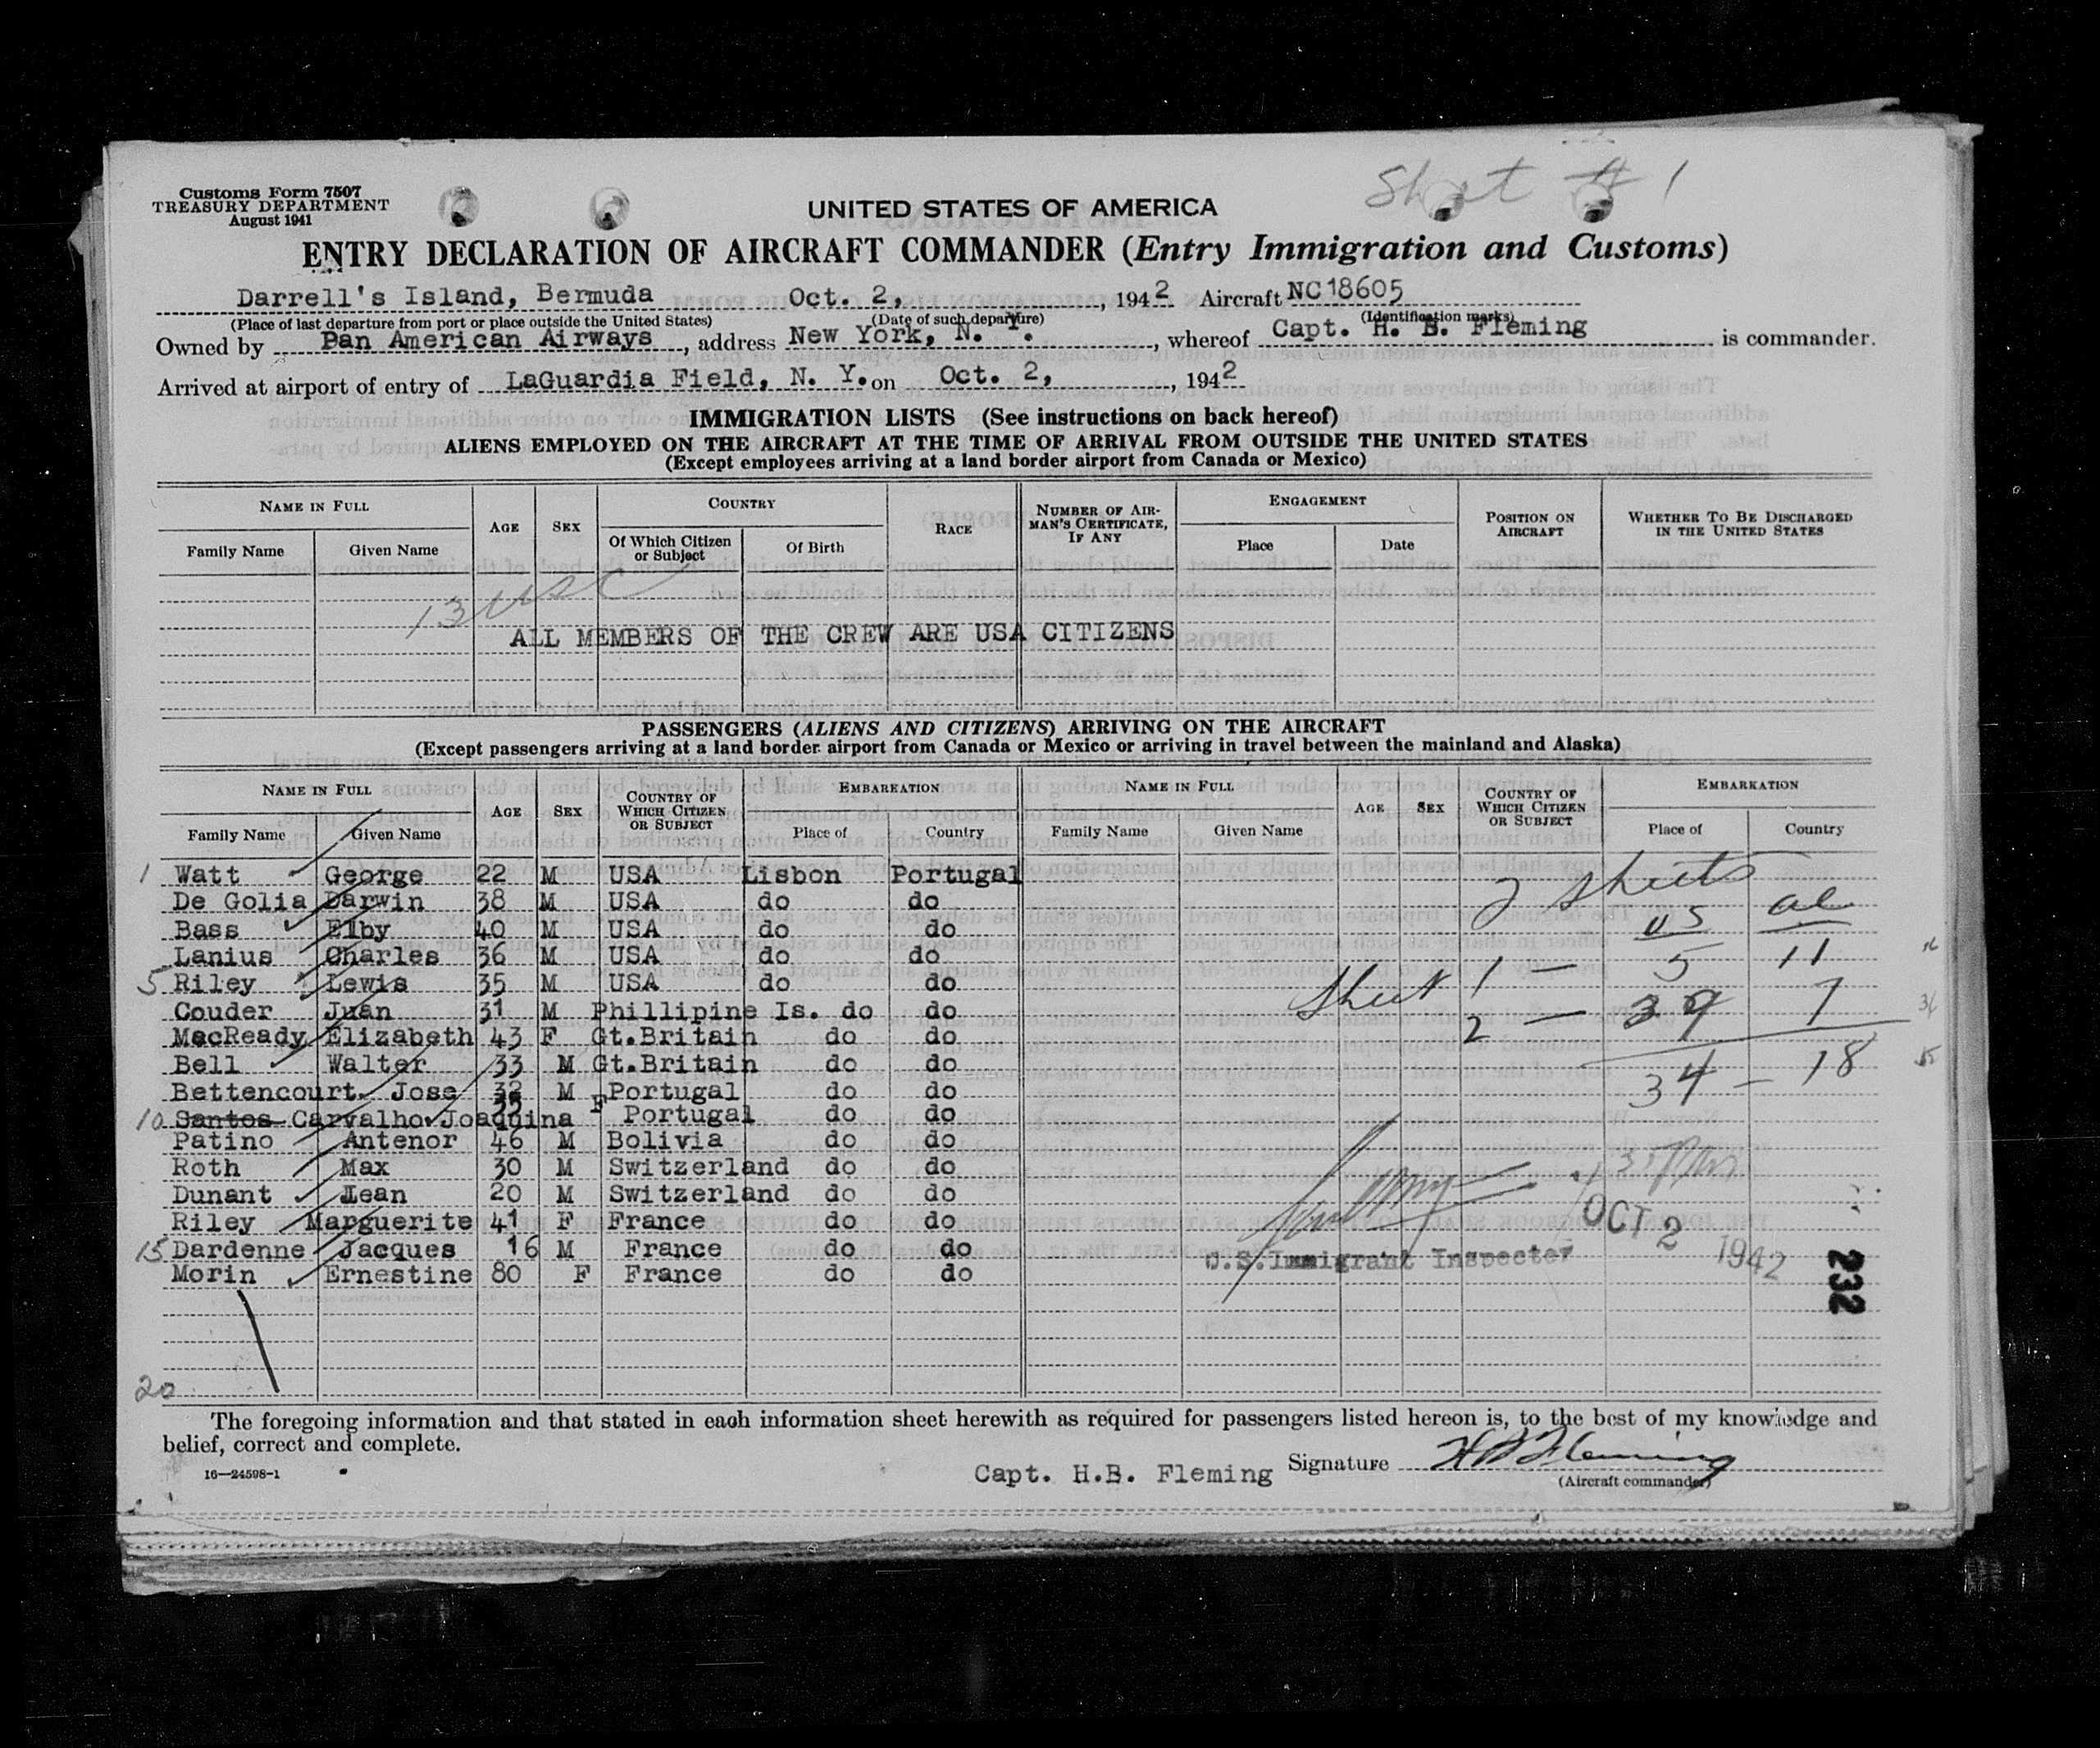 Sheet # 1
Customs Form 7507
TREASURY DEPARTMENT
August 1941
UNITED STATES OF AMERICA
ENTRY DECLARATION OF AIRCRAFT COMMANDER (Entry Immigration and Customs)
Darrell's Island, Bermuda Oct. 2, , 1942 Aircraft NC18605
(Place of last departure from port or place outside the United States) (Date of such departure) (Identification marks)
Owned by Pan American Airways , address New York, N. Y. , whereof Capt. H. B. Fleming is commander.
Arrived at airport of entry of LaGuardia Field, N. Y. on Oct. 2, , 1942
IMMIGRATION LISTS (See instructions on back hereof)
ALIENS EMPLOYED ON THE AIRCRAFT AT THE TIME OF ARRIVAL FROM OUTSIDE THE UNITED STATES
(Except employees arriving at a land border airport from Canada or Mexico)
NAME IN FULL AGE SEX COUNTRY RACE NUMBER OF AIRMAN'S CERTIFICATE, IF ANY ENGAGEMENT POSITION ON AIRCRAFT WHETHER TO BE DISCHARGED IN THE UNITED STATES
Family Name Given Name Of Which Citizen or Subject Of Birth Place Date
13 USC
ALL MEMBERS OF THE CREW ARE USA CITIZENS
PASSENGERS (ALIENS AND CITIZENS) ARRIVING ON THE AIRCRAFT
(Except passengers arriving at a land border airport from Canada or Mexico or arriving in travel between the mainland and Alaska)
NAME IN FULL AGE SEX COUNTRY OF WHICH CITIZEN OR SUBJECT EMBARKATION NAME IN FULL AGE SEX COUNTRY OF WHICH CITIZEN OR SUBJECT EMBARKATION
Family Name Given Name Place of Country Family Name Given Name Place of Country
1 Watt George 22 M USA Lisbon Portugal 2 sheets
De Golia Darwin 38 M USA do do US al
Bass Elby 40 M USA do do
Lanius Charles 36 M USA do do Sheet 1 — 5 11
5 Riley Lewis 35 M USA do do
Couder Juan 31 M Phillipine Is. do do 2 — 7
MacReady Elizabeth 43 F Gt.Britain do do
Bell Walter 33 M Gt.Britain do do 34 — 18
Bettencourt Jose 32 M Portugal do do
10 Santos Carvalho Joaquina 35 F Portugal do do
Patino Antenor 46 M Bolivia do do
Roth Max 30 M Switzerland do do
Dunant Jean 20 M Switzerland do do
Riley Marguerite 41 F France do do OCT 2 1942
15 Dardenne Jacques 16 M France do do U.S. Immigrant Inspector
Morin Ernestine 80 F France do do
232
20
The foregoing information and that stated in each information sheet herewith as required for passengers listed hereon is, to the best of my knowledge and
belief, correct and complete.
16—24598-1
Capt. H.B. Fleming Signature H B Fleming
(Aircraft commander)